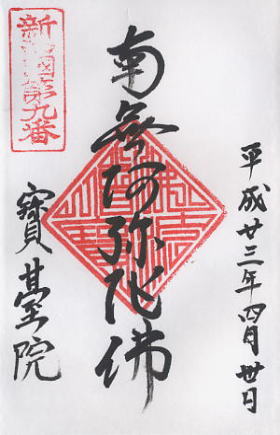 平成廿三年四月丗日
南無阿弥陀佛
寶臺院
第九番